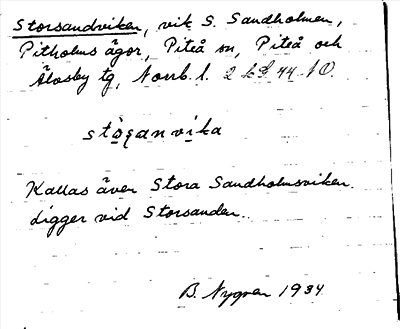 Storsandviken, vik S. Sandholmen,
Pitholms ägor, Piteå sn, Piteå och
Älvsby tg, Norrb. l. 2
stòranvika
Kallas även Stora Sandholmsviken.
Ligger vid Storsanden.
B. Nygren 1934